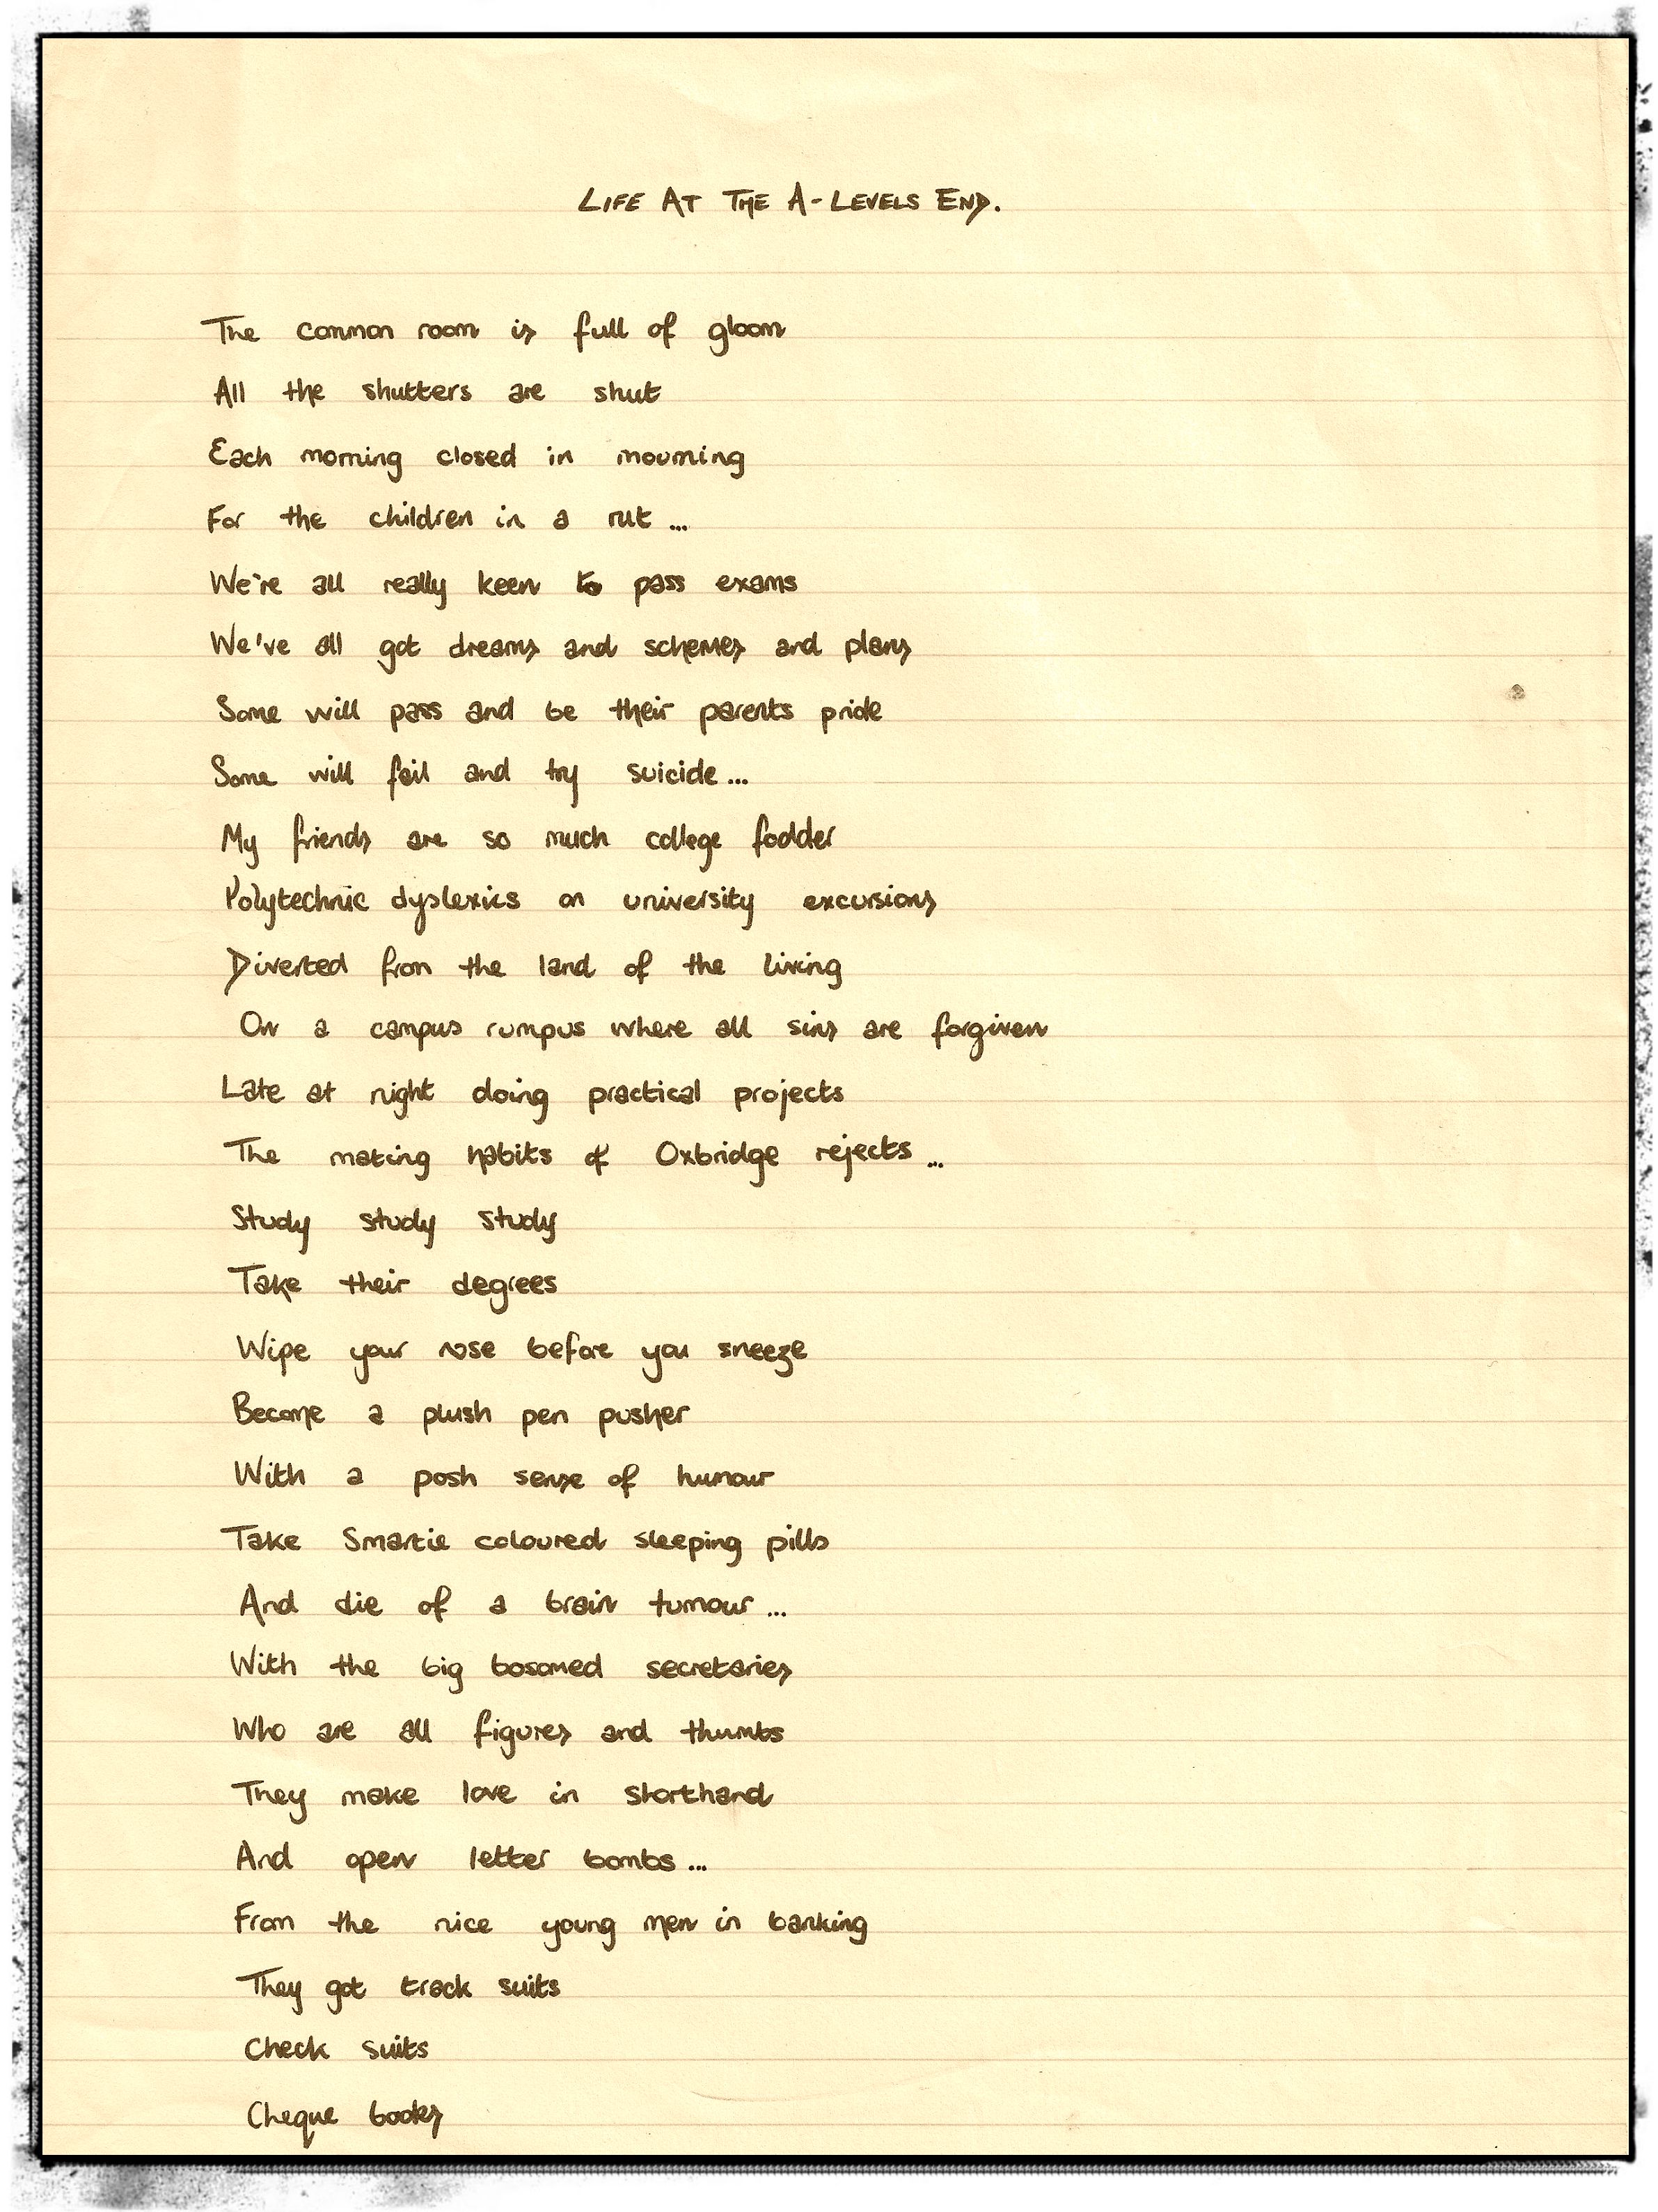 LIFE AT THE A-LEVELS END.
The common room is full of gloom
All the shutters are shut
Each morning closed in mourning
For the children in a rut ...
We're all really keen to pass exams
We've all got dreams and schemes and plans
Some will pass and be their parents pride
Some will fail and try suicide ...
My friends are so much college fodder
Polytechnic dyslexics on university excursions
Diverted from the land of the living
On a campus rumpus where all sins are forgiven
Late at night doing practical projects
The mating habits of Oxbridge rejects ...
Study study study
Take their degrees
Wipe your nose before you sneeze
Become a plush pen pusher
With a posh sense of humour
Take Smartie coloured sleeping pills
And die of a brain tumour ...
With the big bosomed secretaries
Who are all figures and thumbs
They make love in shorthand
And open letter bombs ...
From the nice young men in banking
They got track suits
Check suits
Cheque books